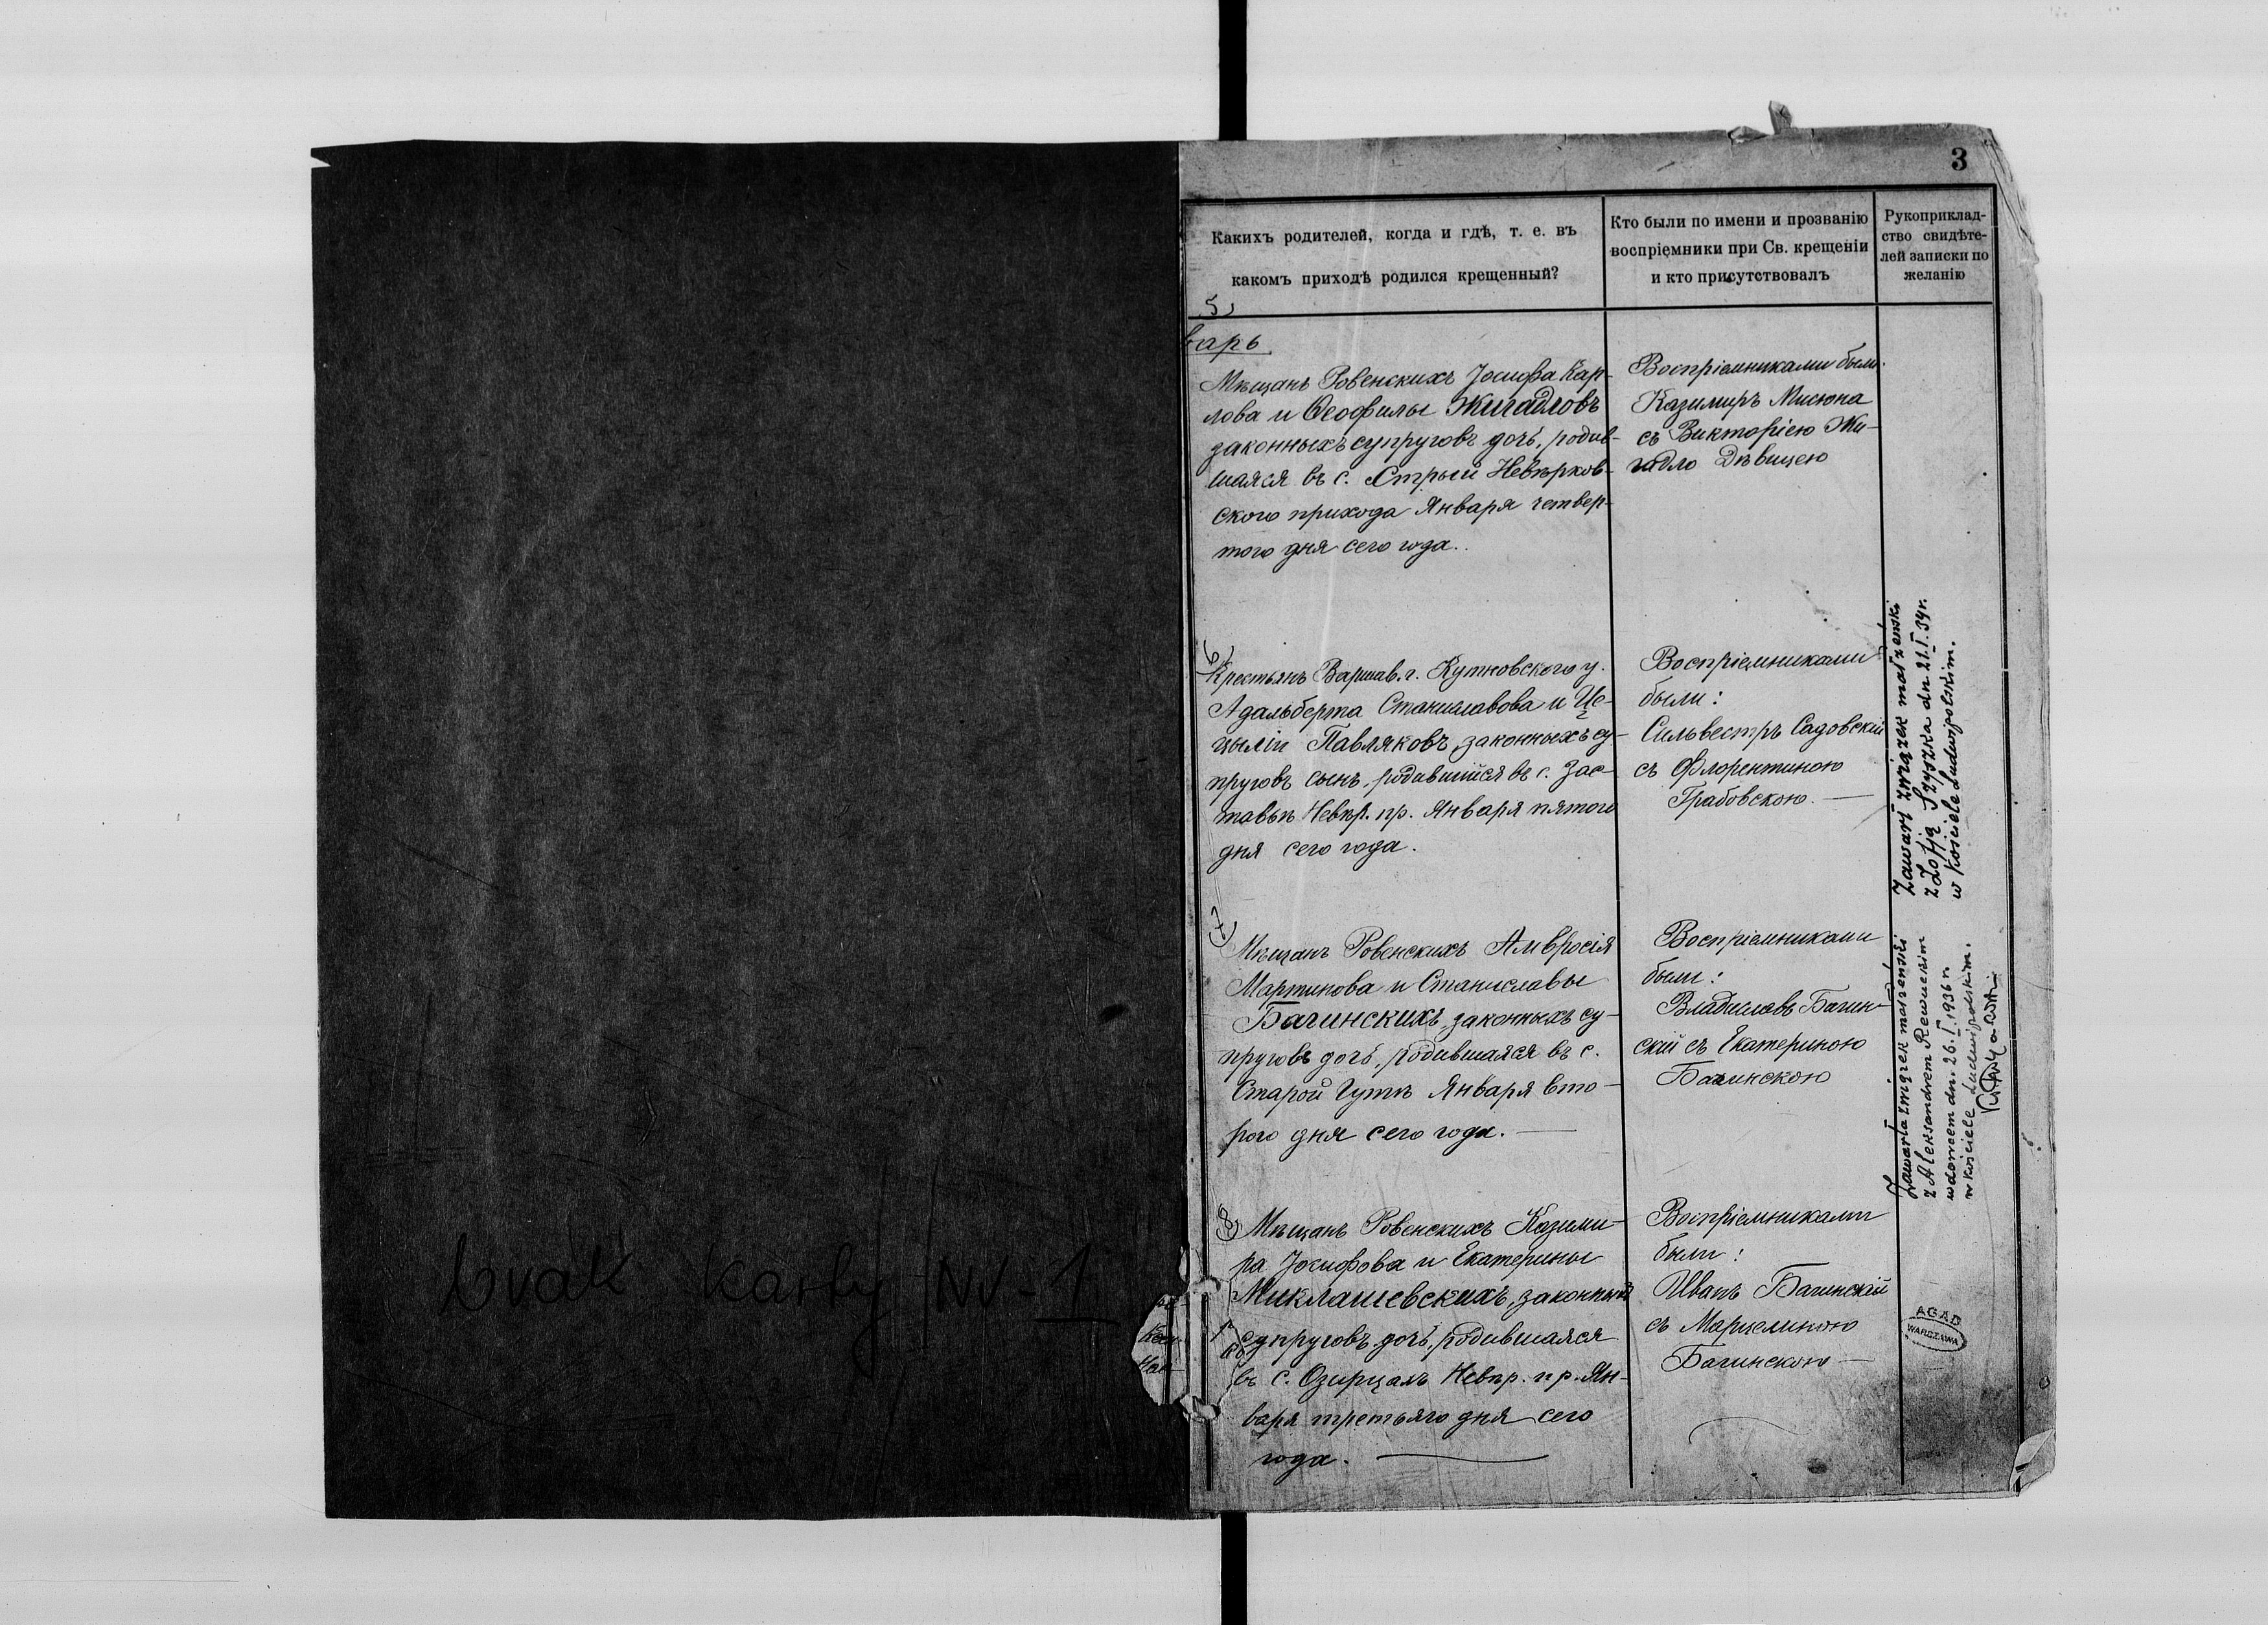 brak karty Nr-1
3
Какихъ родителей, когда и гдѣ, т. е. въ
какомъ приходѣ родился крещенный?
Кто были по имени и прозванію
воспріемники при Св. крещеніи
и кто присутствовалъ
Рукоприклад-
ство свидѣте-
лей записки по
желанію
5)
варь
Мѣщанъ Ровенскихъ Іосифа Кар-
лова и Ѳеофилы Жигадловъ
законныхъ супруговъ дочь, родив-
шаяся въ с. Стрый Невѣрков-
ского прихода Января четвер-
того дня сего года.
Воспріемниками были
Казимиръ Мисюна
съ Викторіею Жи-
гадло Дѣвицею
6)
Крестьянъ Варшав. г. Кутновского у.
Адальберта Станиславова и Це-
циліи Павляковъ, законныхъ су-
пруговъ сынъ, родившійся въ с. Зас-
тавьѣ Невѣр. пр. Января пятого
дня сего года.
Воспріемниками
были:
Сильвестръ Садовскій
съ Флорентиною
Грабовскою. —
Zawarł związek małżeński
z Zofją Szyszka dn. 21.I.39r.
w Kościele Ludwipolskim.
7)
Мѣщанъ Ровенскихъ Амвросія
Мартинова и Станиславы
Багинскихъ, законныхъ су-
пруговъ дочь, родившаяся въ с.
Старой Гутѣ Января вто-
рого дня сего года. —
Воспріемниками
были:
Владиславъ Багин-
скій съ Екатериною
Багинскою
Zawarła związek małżeński
z Aleksandrem Rewuckim
wdowcem dn. 26.I.1936 r.
w kościele Ludwipolskim.
8) Мѣщанъ Ровенскихъ Казими-
ра Іосифова и Екатерины
Миклашевскихъ, законныхъ
супруговъ дочь, родившаяся
въ с. Озирцахъ Невѣр. пр. Ян-
варя третьяго дня сего
года. —
Воспріемниками
были:
Иванъ Багинскій
съ Марцелиною
Багинскою —
AGAD
WARSZAWA